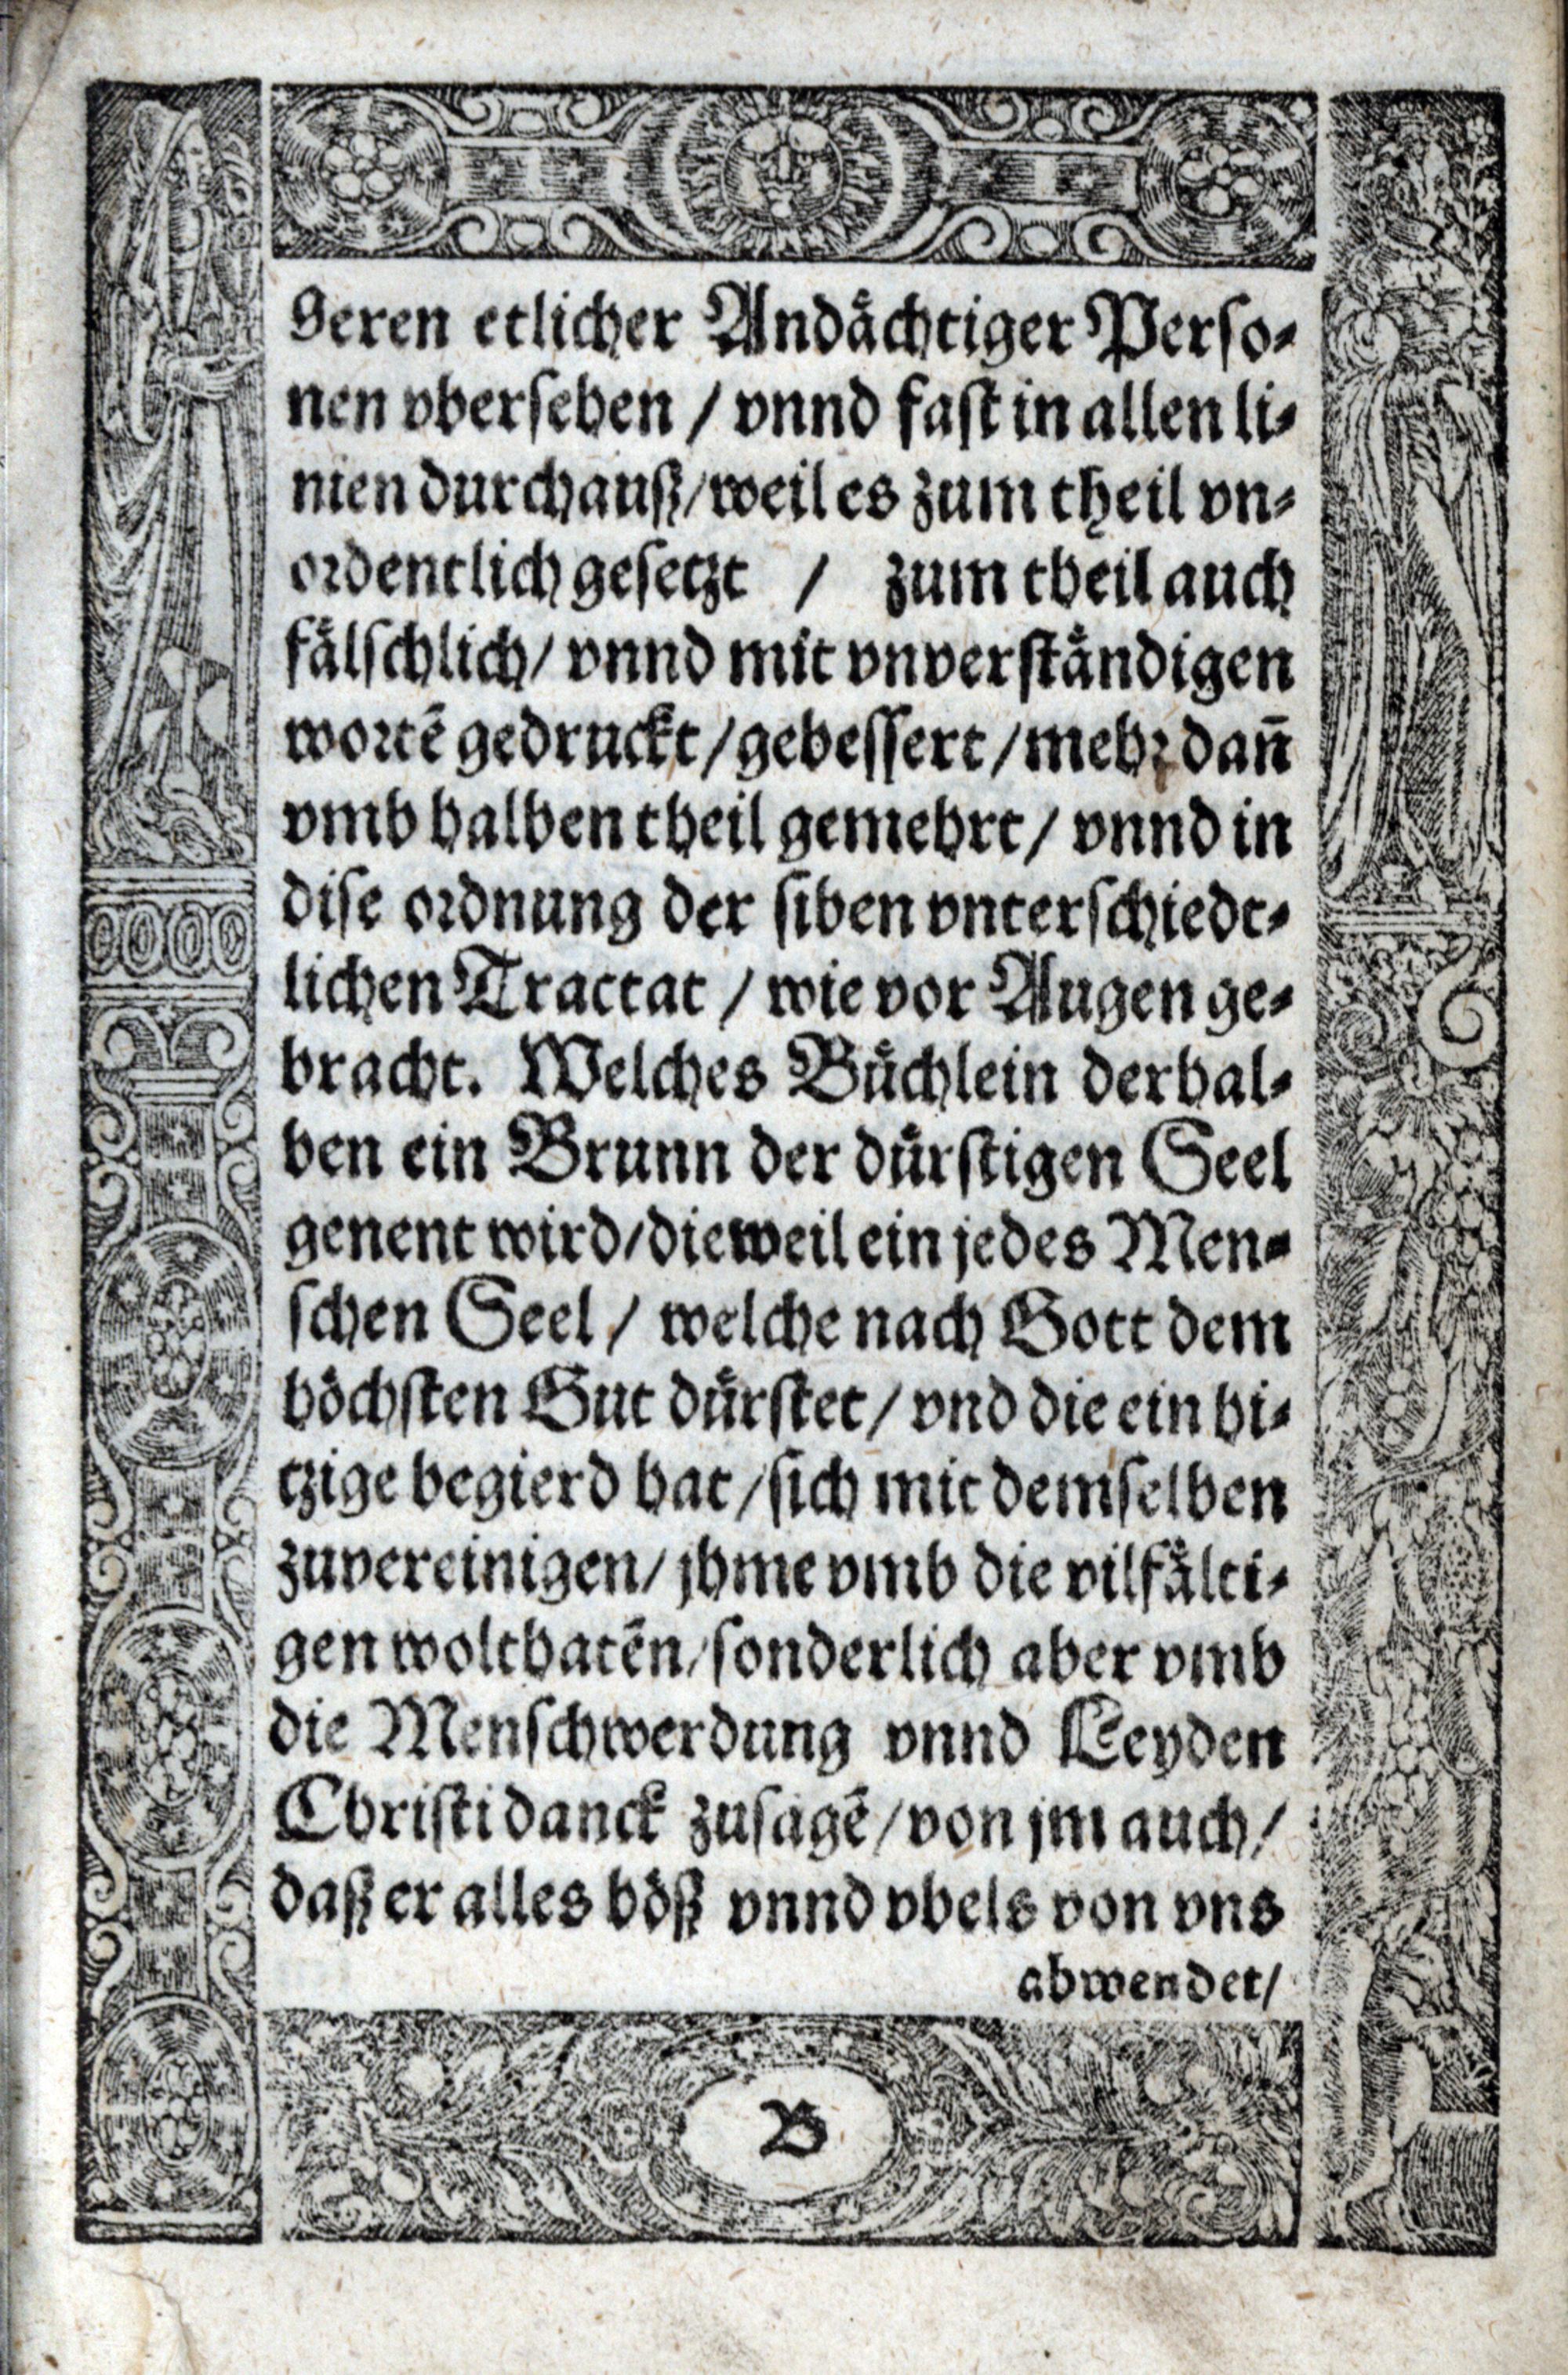 geren etlicher Andächtiger Perso-
nen vbersehen / vnnd fast in allen li-
nien durchauß / weil es zum theil vn-
ordentlich gesetzt / zum theil auch
fälschlich / vnnd mit vnverständigen
wortē gedruckt / gebessert / mehr dañ
vmb halben theil gemehrt / vnnd in
dise ordnung der siben vnterschiedt-
lichen Tractat / wie vor Augen ge-
bracht. Welches Büchlein derhal-
ben ein Brunn der dürstigen Seel
genent wird / dieweil ein jedes Men-
schen Seel / welche nach Gott dem
höchsten Gut dürstet / vnd die ein hi-
tzige begierd hat / sich mit demselben
zuvereinigen / jhme vmb die vilfälti-
gen wolthatēn / sonderlich aber vmb
die Menschwerdung vnnd Leyden
Christi danck zusagē / von jm auch /
daß er alles böß vnnd vbels von vns
abwendet /
B